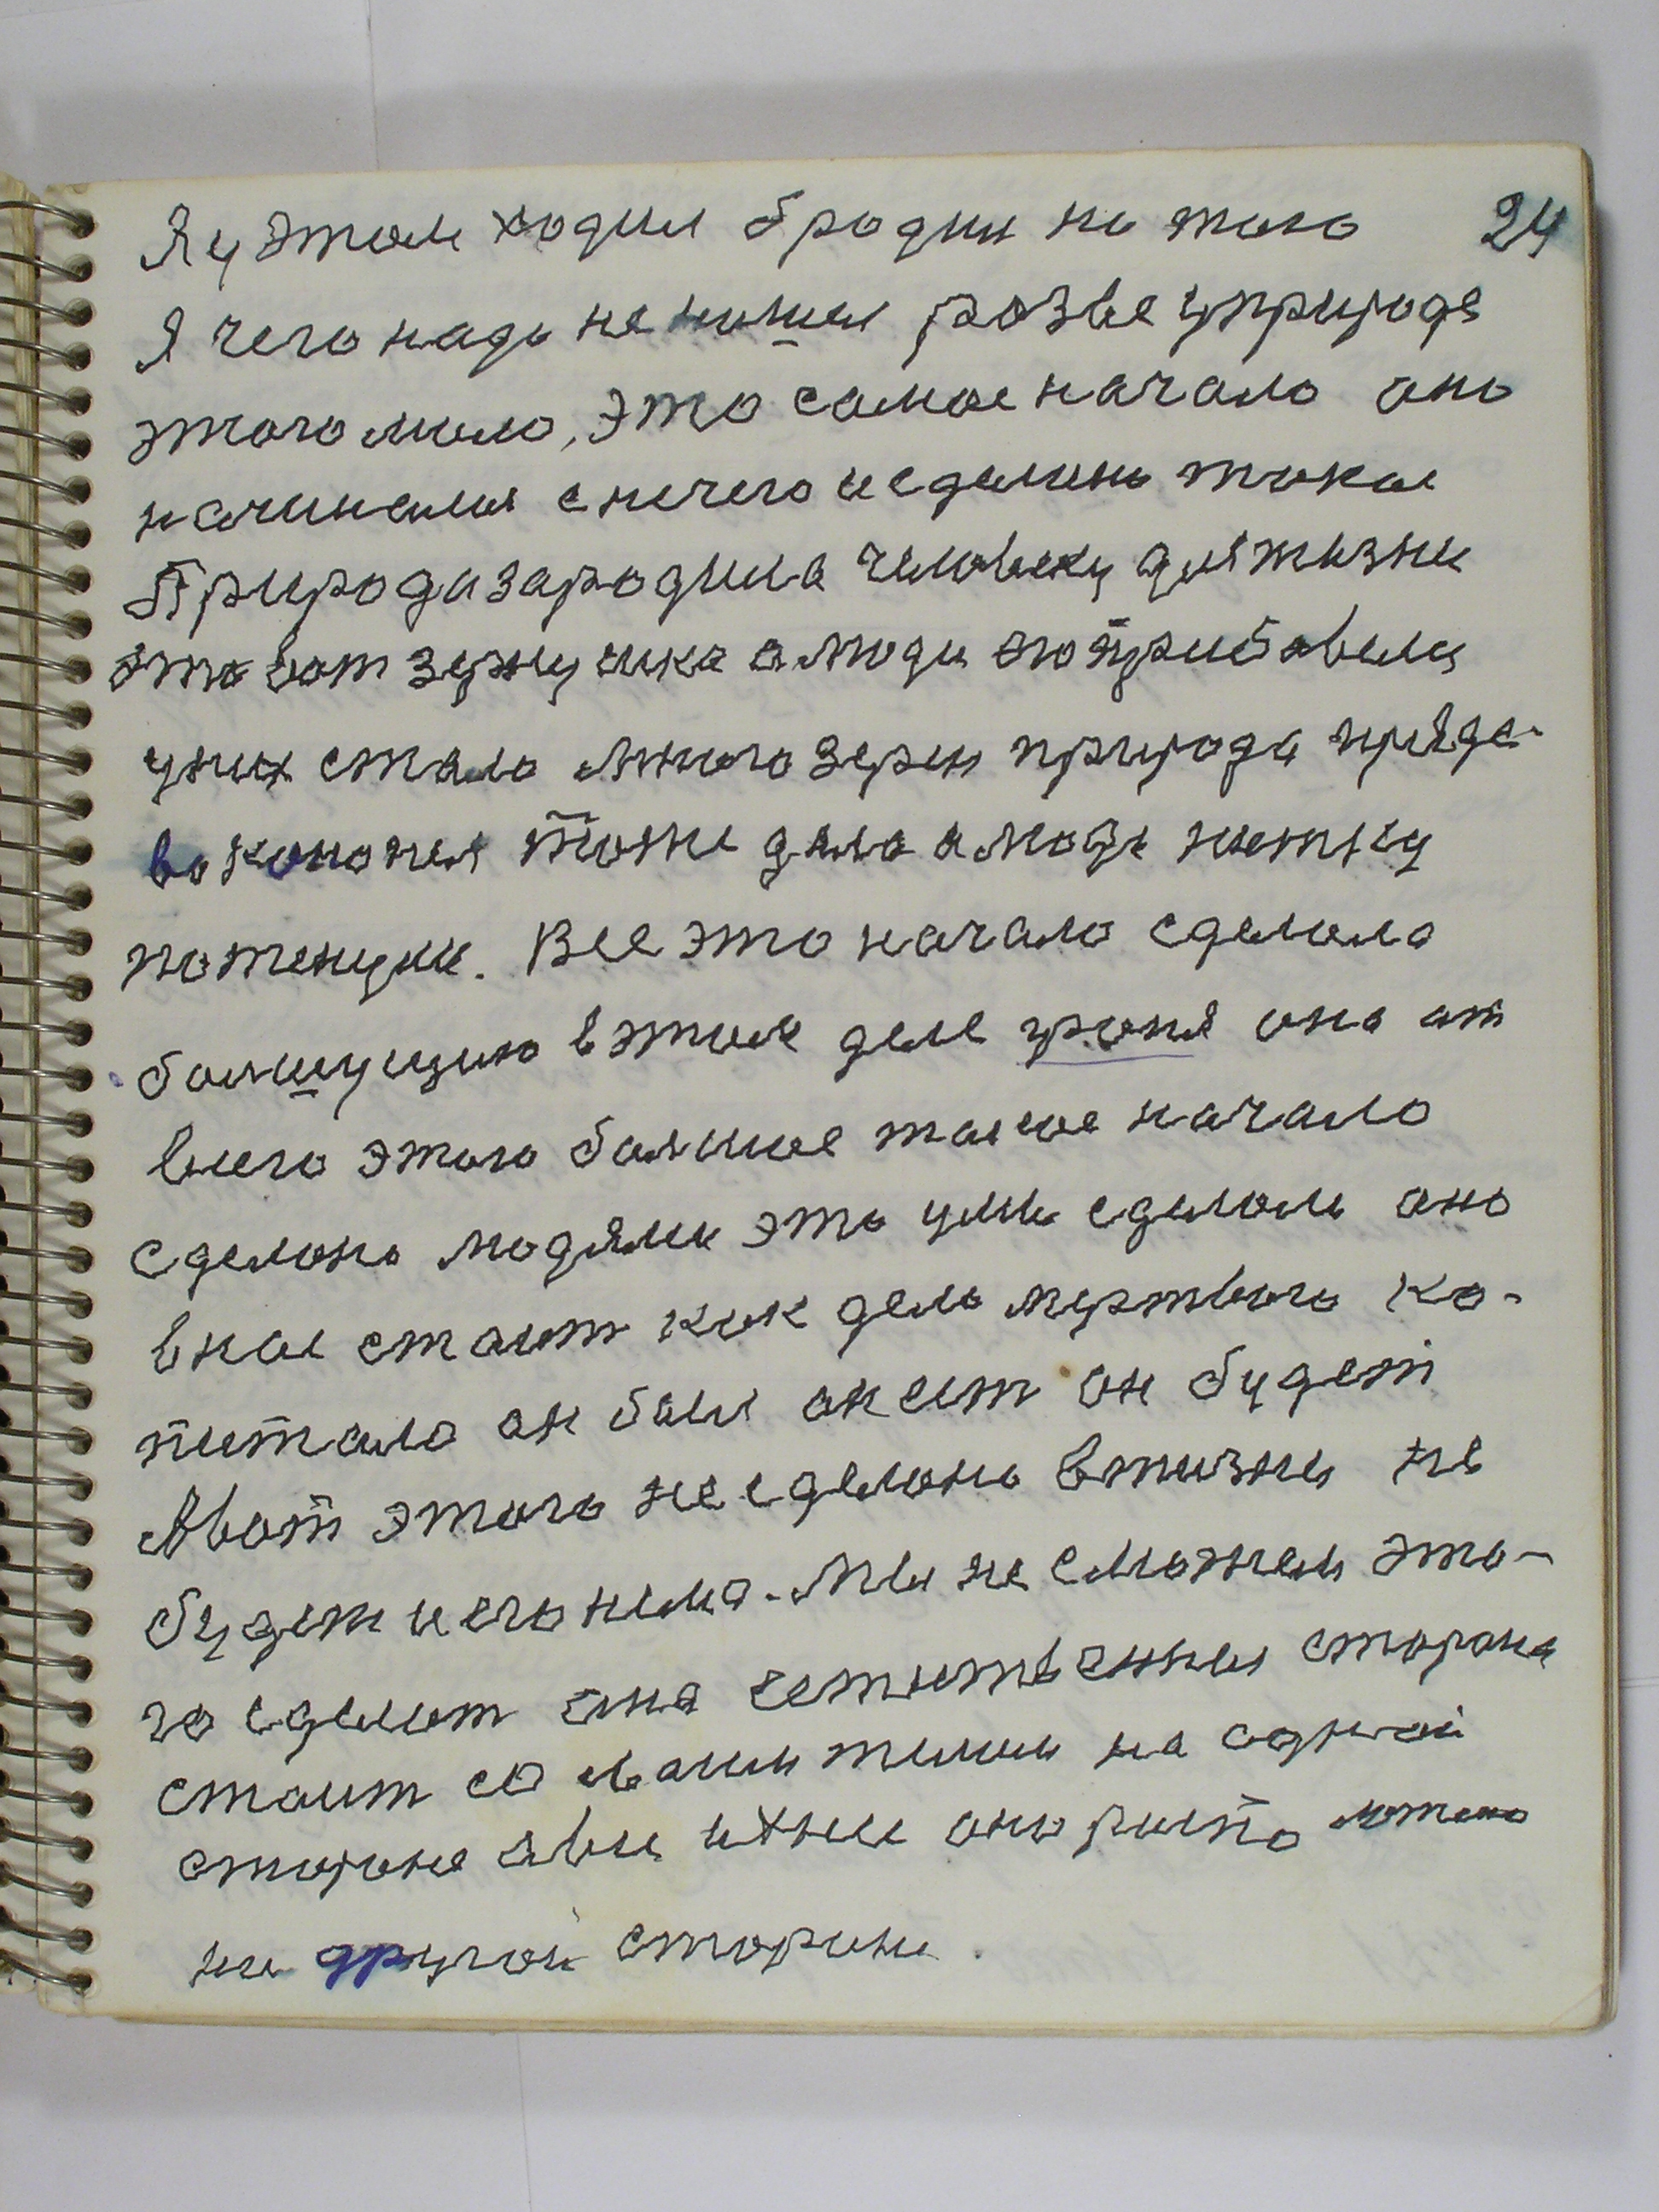 Я у этом ходил бродил но того 24
я чего надо не нашел розве уприроде
этого мало, это самое начало оно
начиналея с нечего исделано такое
Природа зародила человеку для жизни
это вот зернушка алюди его прибавели
уних стало много зерен природа преде-
ва кокона тоже дала алюди нетку
потенули. Все это начало сделала
болшущию вэтом деле ураня она от
всего этого болшое такое начало
сделоно людями это уми сделоли оно
внас стаит как дело мертвого ка-
питала он бил онест он будет
Авот этого несделоно вжизни не
будет иего нема. Ми не сможем это-
го сделат она естественная сторона
стаит со своими телом на одной
стороне авсе ихнее оно
на другой стороне.